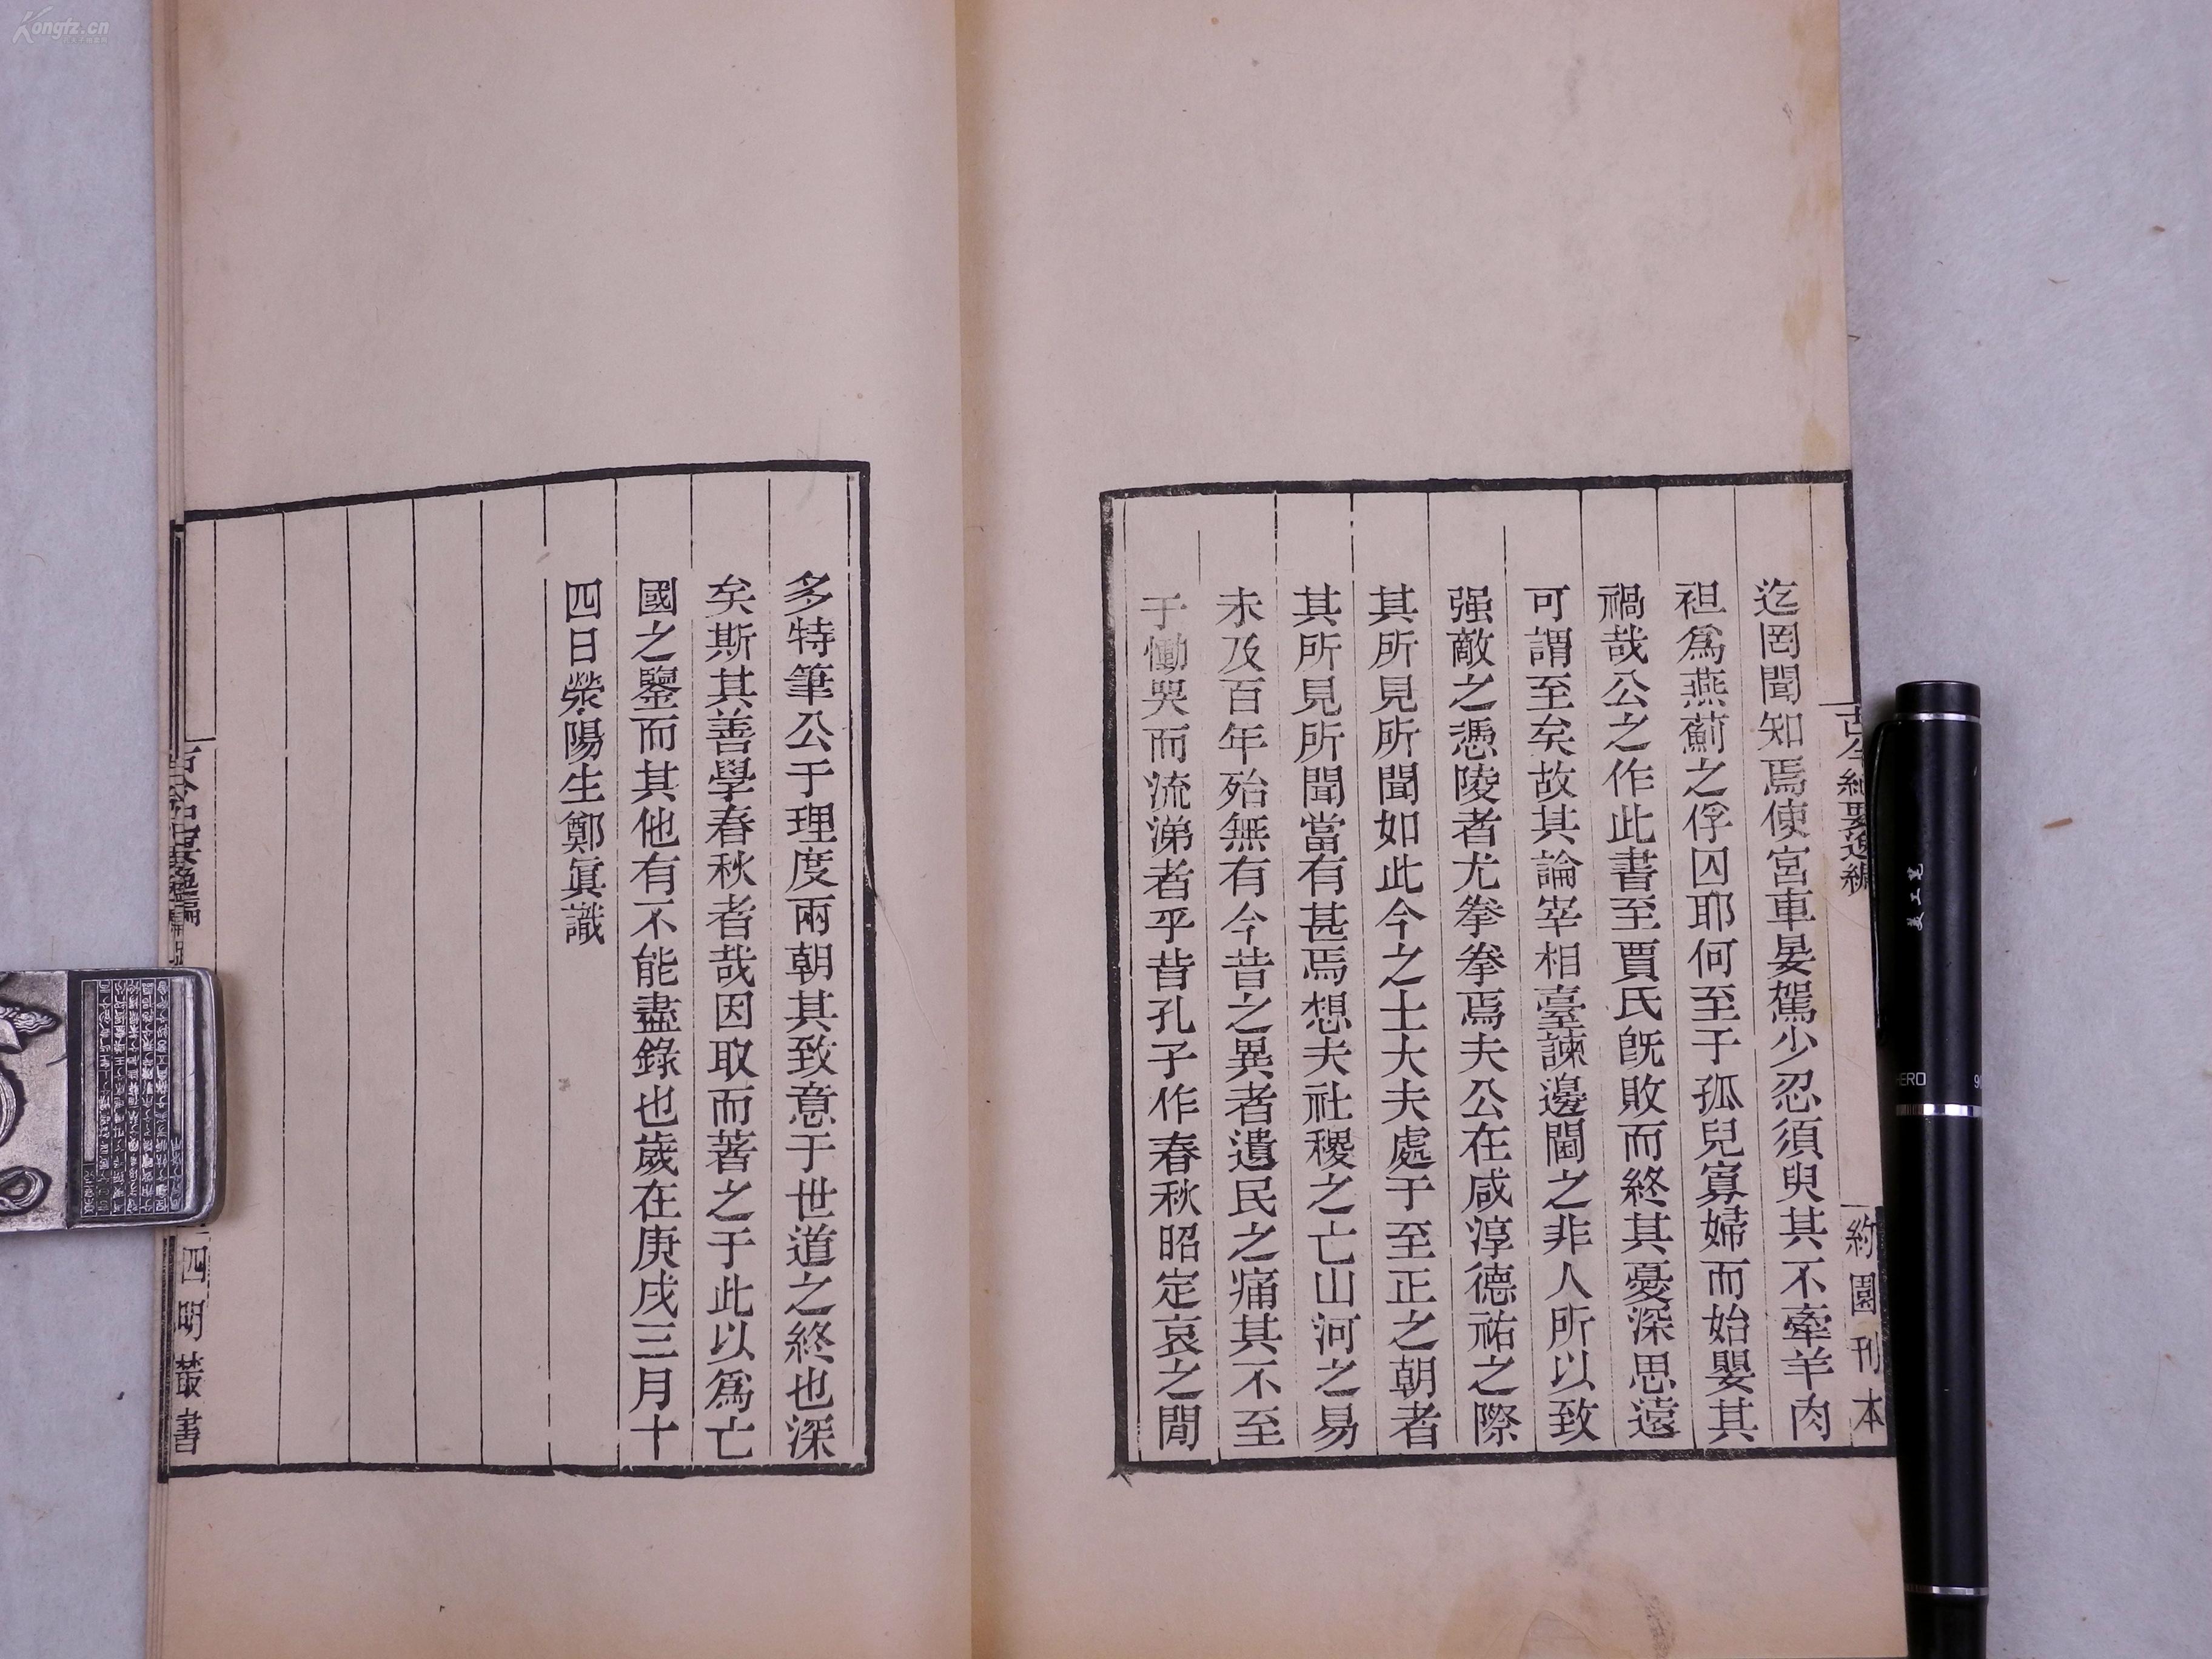 迄罔聞知焉使宮車晏駕少忍須臾其不牽羊肉
袒爲燕薊之俘囚耶何至于孤兒寡婦而始嬰其
禍哉公之作此書至賈氏旣敗而終其憂深思遠
可謂至矣故其論宰相臺諫邊閫之非人所以致
强敵之憑陵者尤拳拳焉夫公在咸淳德祐之際
其所見所聞如此今之士大夫處于至正之朝者
其所見所聞當有甚焉想夫社稷之亡山河之易
未及百年殆無有今昔之異者遺民之痛其不至
于慟哭而流涕者乎昔孔子作春秋昭定哀之閒
多特筆公于理度兩朝其致意于世道之終也深
矣斯其善學春秋者哉因取而著之于此以爲亡
國之鑒而其他有不能盡錄也歲在庚戌三月十
四日滎陽生鄭眞識
古今紀要逸編
約園刊本
古今紀要逸編
四明叢書
HERO
Kongfz.cn